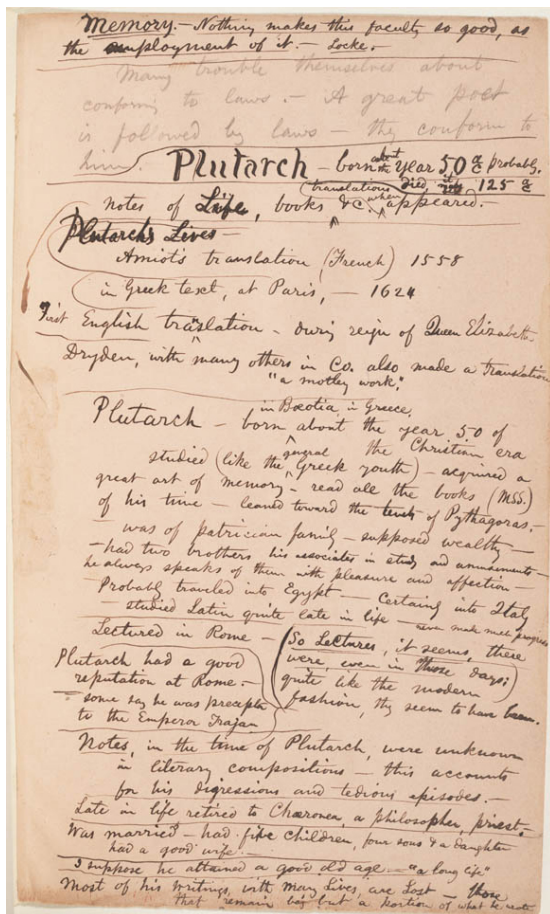 Memory. – Nothing makes this faculty so good, as
the employment of it. – Locke.
Many trouble themselves about
conforming to laws. – A great poet
is followed by laws – they conform to
him
Plutarch – born about the Year 50 probably.
died, 125
notes of Life, books &c. when translations appeared. –
Plutarch's Lives –
Amiot's translation (French) 1558
in Greek text, at Paris, – 1624
First English translation – during reign of Queen Elizabeth
Dryden, with many others in Co. also made a translation
"a motley work",
in Bœotia, in Greece,
Plutarch – born about the year 50 of
the Christian era
studied (like the general Greek youth) – acquired a
great art of memory – read all the books (MSS.)
of his time – leaned toward the tenets of Pythagoras. –
– was of patrician family – supposed wealthy –
– had two brothers his associates in study and amusements –
he always speaks of them with pleasure and affection –
Probably traveled into Egypt – Certainly into Italy
– studied Latin quite late in life – never made much progress
Lectured in Rome – (So Lectures, it seems, there
were, even in those days;
quite like the modern
fashion, they seem to have been.
Plutarch had a good
reputation at Rome –
– some say he was preceptor
to the Emperor Trajan
Notes, in the time of Plutarch, were unknown
in literary compositions – this accounts
for his digressions and tedious episodes. –
Late in life retired to Chæronea, a philosopher, priest.
Was married – had five children, four sons & a daughter
had a good wife. –
I suppose he attained a good old age – "a long life"
Most of his writings, with many Lives, are Lost – those
that remain being but a portion of what he wrote